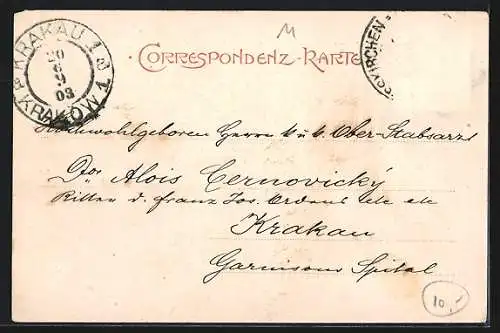 M
CORRESPONDENZ-KARTE
KRAKAU 1
20
6 9
03
KRAKÓW 1
KIRCHEN
Hochwohlgeboren Herrn k. u. k. Ober-Stabsarzt
Dor Alois Cernovický
Ritter d. Franz Jos. Ordens etc etc
Krakau
Garnisons Spital
10,-